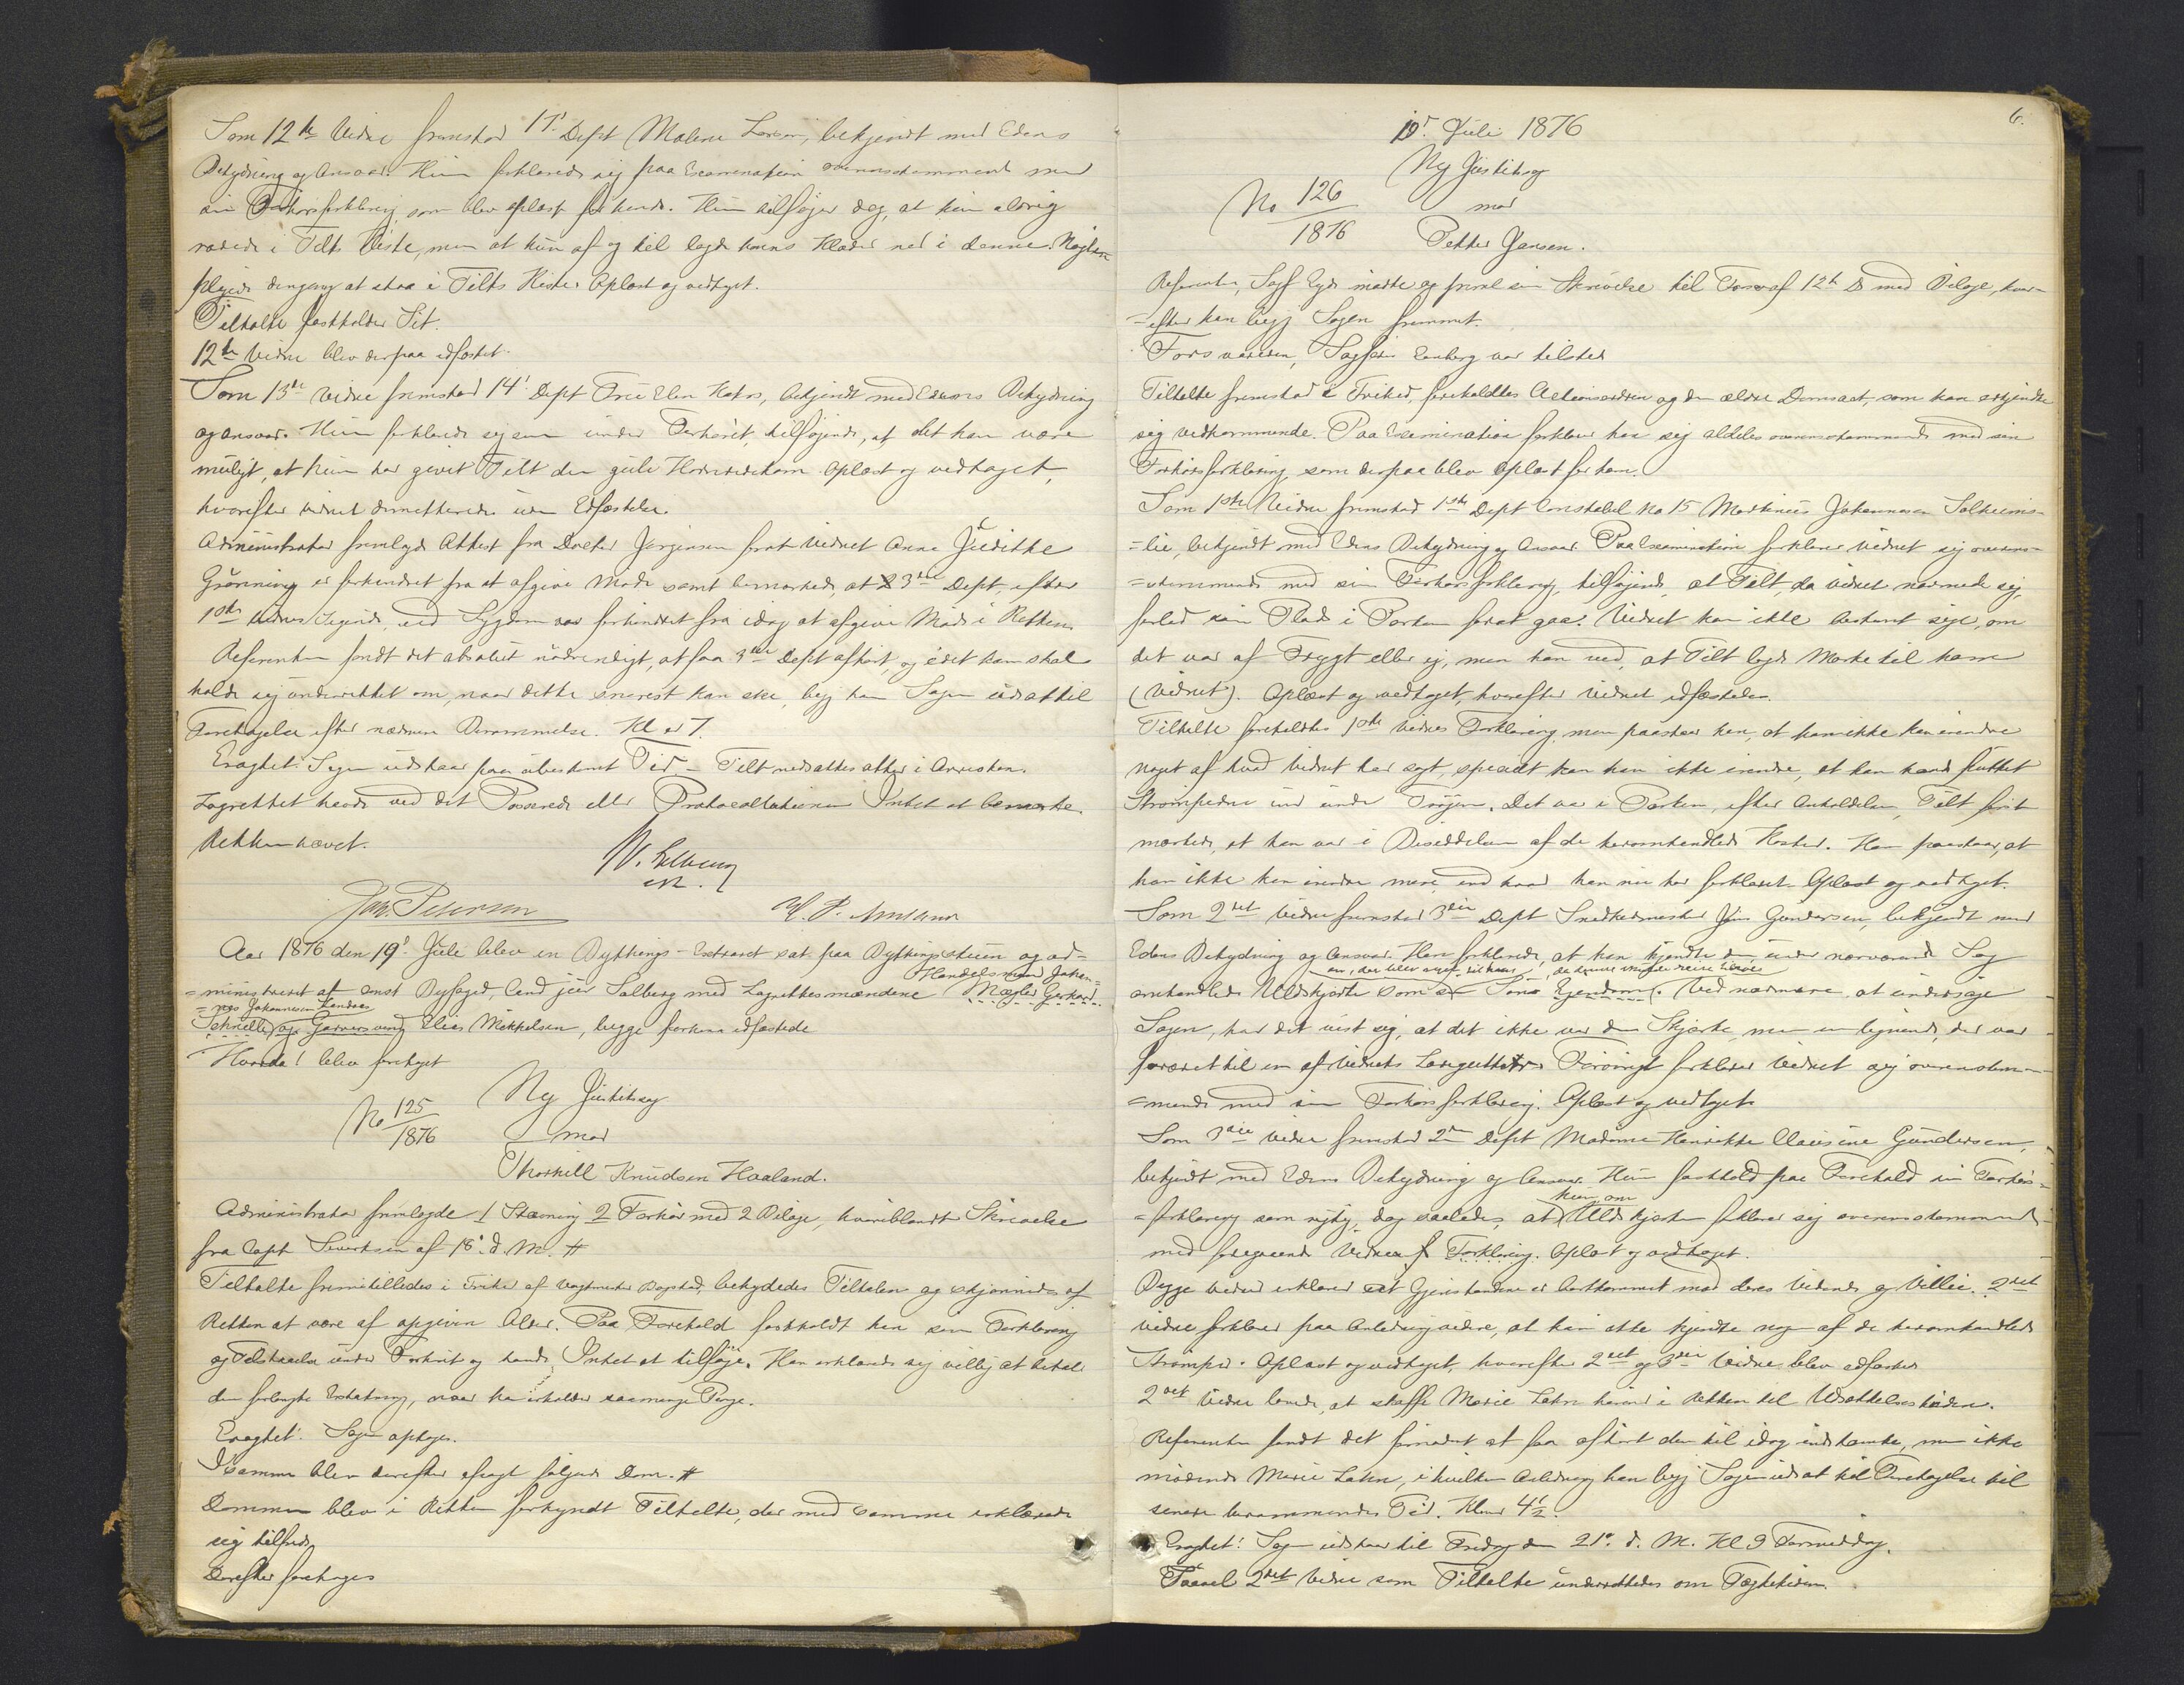 Som 12te Vidne fremstod 11' Dept Malene Larsen, bekjendt med Edens
Betydning og Ansvar. Hun forklarede sig paa Examination overensstemmende med
sin Forhørsforklaring, som blev oplæst for hende. Hun tilføjer dog, at hun aldrig
rodede i Tilts Kiste, men at hun af og til lagde hans Klæder ned i denne. Nøglen
plejede dengang at staa i Tilts Kiste. Oplæst og vedtaget.
Tiltalte fastholder Sit.
12te Vidne blev derpaa edfæstet.
Som 13de Vidne fremstod 14' Dept Frue Elen Hahn, bekjendt med Edens Betydning
og Ansvar. Hun forklarede sig som under Forhøret, tilføjende, at det kan være
muligt, at hun har givet Tilt den gule Oplæst og vedtaget,
hvorefter Vidnet dimitteredes uden Edfæstelse.
Administrator fremlagde Attest fra Doctor Jørgensen forat Vidnet Anna Judithe
Grønning er forhindret fra at afgive Møde samt bemærkede, at 3die Dept, efter
1ste Vidnes Sigende, ved Sygdom var forhindret fra idag at afgive Møde i Retten.
Referenten fandt det absolut nødvendigt, at faa 3die Dept afhørt, og idet han skal
holde sig underrettet om, naar dette snarest kan ske, begj han Sagen udsat til
Foretagelse efter nærmere Berammelse. Kl er 7.
Eragtet: Sagen udstaar paa ubestemt Tid. - Tilt nedsattes atter i Arresten.
Lagrettet havde ved det Passerede eller Protocollationen Intet at bemærke.
Retten hævet.
Jac. Petersen
Aar 1876 den 19' Juli blev en Bythings-Extraret sat paa Bythingsstuen og ad-
=ministreret af const Byfoged, Cand jur Solberg med Lagrettesmændene Mægler Gerhard
Handelsmand Johan-
=nes Johannessen
Schnelle og Garversvend Elias Mikkelsen, begge forhen edfæstede
Hvorda! blev foretaget
No 125/1876
Ny Justitssag
mod
Thorkill Knudsen Haaland.
Administrator fremlagde 1 Stævning 2 Forhør med 2 Bilage, hvoriblandt Skrivelse
fra Capt Sivertsen af 18' d. M. #
Tiltalte fremstilledes i Frihed af Vagtmester Bogstad, betydedes Tiltalen og skjønnedes af
Retten at være af opgiven Alder. Paa Forehold fastholdt han sin Forklaring
og Tilstaaelse under Forhøret og havde Intet at tilføje. Han erklærede sig villig at betale
den forlangte Erstatning, naar han erholder saamange Penge.
Eragtet: Sagen optages.
I samme blev derefter afsagt følgende Dom. #
Dommen blev i Retten forkyndt Tiltalte, der med samme erklærede
sig tilfreds
Derefter foretoges
6.
19' Juli 1876
Ny Justitssag
No 126/1876
mod
Petter Jansen.
Referenten, Sagf Eyde mødte og freml sin Skrivelse til Forsv af 12te ds med Bilage, hvor-
=efter han begj Sagen fremmet.
Forsvareren, Sagfører Enberg var tilstede
Tiltalte fremstod i Frihed, foreholdtes Actionsordren og den ældre Domsact, som han erkjendte
sig vedkommende. Paa Examination forklarer han sig aldeles overensstemmende med sin
Forhørsforklaring, som derpaa blev oplæst for ham.
Som 1ste Vidne fremstod 1ste Dept Constabel No 15 Martinus Johannesen Solheims-
=lie, bekjendt med Edens Betydning og Ansvar. Paa Examination forklarer Vidnet sig overens-
=stemmende med sin Forhørsforklaring, tilføjende, at Tilt, da Vidnet nærmede sig,
forlod sin Plads i Porten forat gaa. Vidnet kan ikke bestemt sige, om
det var af Frygt eller ej, men han ved, at Tilt lagde Mærke til ham
(Vidnet). Oplæst og vedtaget, hvorefter Vidnet edfæstedes.
Tiltalte foreholdtes 1ste Vidnes Forklaring, men paastaar han, at han ikke kan erindre
noget af hvad Vidnet har sagt, specielt kan han ikke erindre, at han havde puttet
Strømperne ind under Trøjen. Det var i Porten, efter Anholdelsen, Tilt først
mærkede, at han var i Besiddelsen af de heromhandlede Koster. Han paastaar, at
han ikke kan erindre mere, end hvad han nu har forklaret. Oplæst og vedtaget.
Som 2det Vidne fremstod 3die Dept Snedkermester Jens Gundersen, bekjendt med
Edens Betydning og Ansvar. Han forklarede, at han kjendte den, under nærværende Sag
omhandlede Uldskjorte som sin Søns Ejendom. Ved nærmere at undersøge
Sagen, har det vist sig, at det ikke var den Skjorte, men en lignende, der var
foræret til en af Vidnets Læregutter. Forøvrigt forklarer Vidnet sig overensstem-
=mende med sin Forhørsforklaring. Oplæst og vedtaget.
Som 3die Vidne fremstod 2det Dept Madame Henrikke Clausine Gundersen,
bekjendt med Edens Betydning og Ansvar. Hun fastholdt paa Forehold sin Forhørs-
=forklaring som rigtig, dog saaledes, at hun om Uldskjorten forklarer sig overensstemmende
med foregaaende Vidnes Forklaring. Oplæst og vedtaget.
Begge Vidner erklærer at Gjenstandene er bortkommet mod deres Vidende og Villie. 2det
Vidne forklarer paa Anledning videre, at han ikke kjendte nogen af de heromhandlede
Strømper. Oplæst og vedtaget, hvorefter 2det og 3die Vidne blev edfæstet
2det Vidne lovede, at skaffe Marie Lahn herind i Retten til Udsættelsestiden.
Referenten fandt det fornødent at faa afhørt den til idag indstævnte, men ikke
mødende Marie Lahn, i hvilken Anledning han begj Sagen udsat til Foretagelse til
senere berammendes Tid. Kl er 4½.
Eragtet: Sagen udstaar til Fredag den 21' d. M. Kl 9 Formiddag.
Saavel 2det Vidne som Tiltalte underrettedes om Tægtetiden.